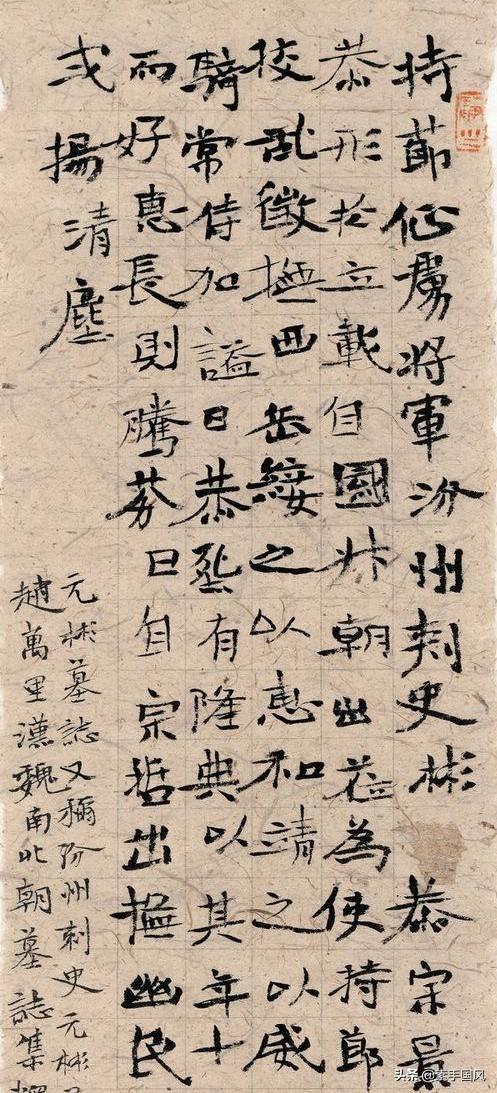 持節征虜將軍汾州刺史彬恭宗景
恭形於立載自國升朝出莅為使持節
狡乱徵撫西岳綏之以惠和靖之以威
騎常侍加謚曰恭烝有隆典以其年十
而好惠長則騰芬曰自宗哲出撫幽民
式揚清塵
元彬墓誌又稱汾州刺史元彬
趙萬里漢魏南北朝墓誌集
头条 @素手国风